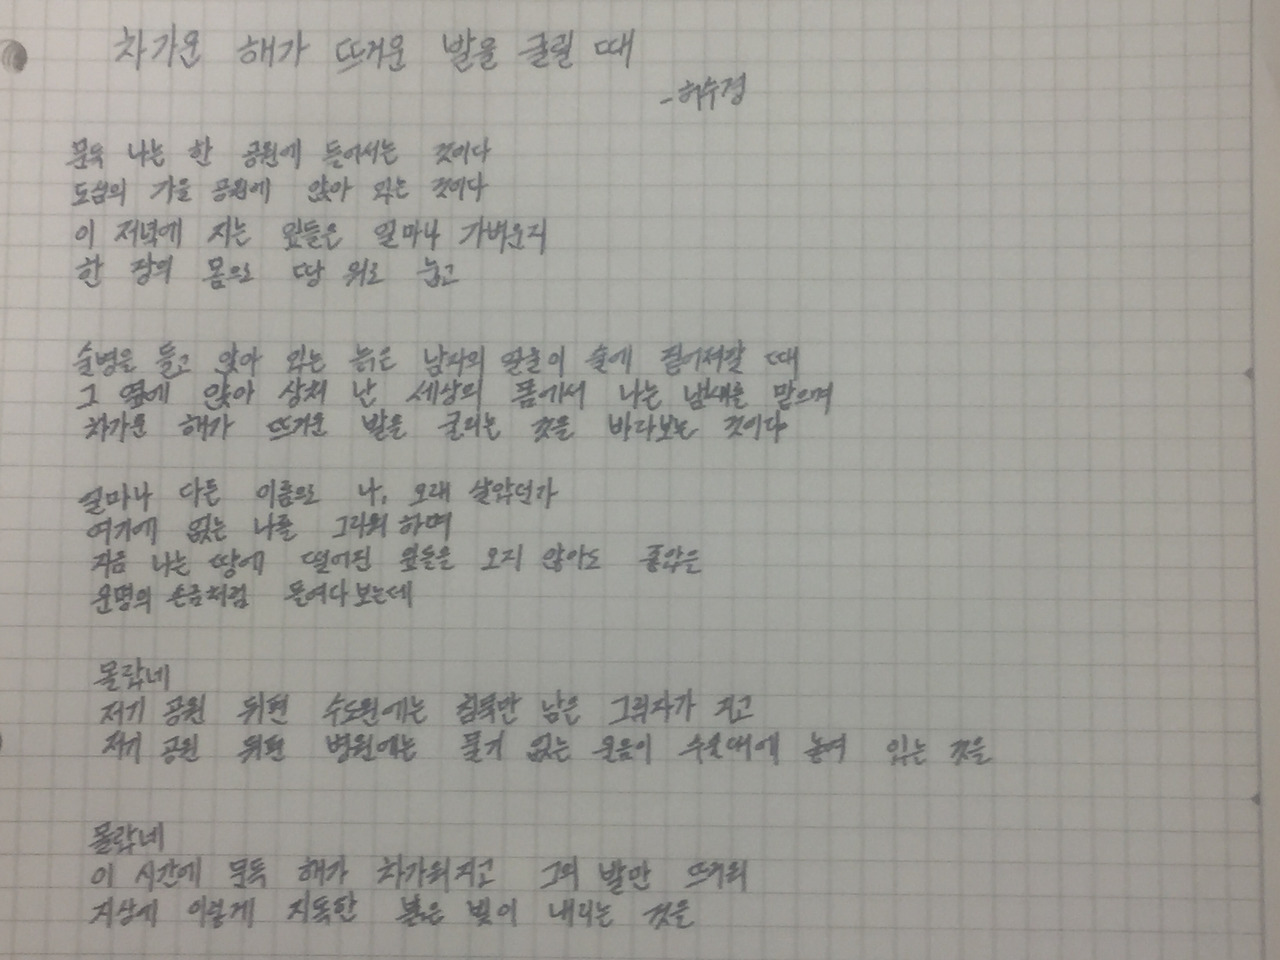 차가운 해가 뜨거운 발을 굴릴 때
-허수경
문득 나는 한 공원에 들어서는 것이다
도심의 가을 공원에 앉아 있는 것이다
이 저녁에 지는 잎들은 얼마나 가벼운지
한 장의 몸으로 땅 위로 눕고
술병을 들고 앉아 있는 늙은 남자의 얼굴이 술에 짙어져갈 때
그 옆에 앉아 상처 난 세상의 몸에서 나는 냄새를 맡으며
차가운 해가 뜨거운 발을 굴리는 것을 바라보는 것이다
얼마나 다른 이름으로 나, 오래 살았던가
여기에 없는 나를 그리워 하며
지금 나는 땅에 떨어진 잎들을 오지 않아도 좋았을
운명의 손금처럼 들여다보는데
몰랐네
저기 공원 뒤편 수도원에는 침묵만 남은 그림자가 지고
저기 공원 뒤편 병원에는 물기 없는 울음이 수술대에 놓여 있는 것을
몰랐네
이 시간에 문득 해가 차가워지고 그의 발만 뜨거워
지상에 이렇게 지독한 붉은 빛이 내리는 것을